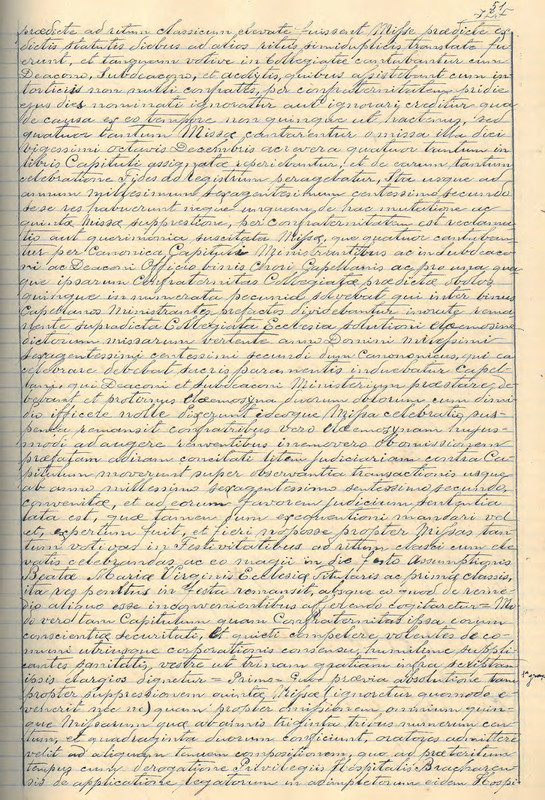 51
prædicta ad ritum classicum elevatæ fuissent Missæ prædictæ ex
dictis statutis diebus ad alios ritus semiduplicis translatæ fu
erunt, et tanquam votivæ in Collegiatæ cantabantur cum
Deacono, Subdeacono, et acolytis, quibus assistebant cum in
torticiis non nulli confratres, per confraternitatem pridie
ejus diei nominati ignoratur aut ignorari creditur qua
de causa ex eo tempore non quinque ut hactenus, sed
quatuor tantum Missæ cantarentur omissa illa diei
vigessimi octavis Decembris ac revera quatuor tantum in
libris Capituli assignatæ reperiebantur, et de earum tantum
celebratione Fides ad registrum peragebatur, Ita usque ad
annum millessimum sexagentessimum centessimo secundo
sese res habuerunt neque unquam de hac mutatione ac
quintæ Missæ suppressione, per confraternitatem est reclama
tio aut querimonia suscitata Missæ, quæ quatuor cantaban
tur per Canonica Capituli Ministrantibus ac subdeaco
ni ac Deaconi Officio binis Chori Capellanis ac pro una qua
que ipsarum Confraternitas Collegiatæ prædictæ obolos
quinque in numerata pecunia solvebat qui inter binos
Capellanos Ministrantes præfactos dividebantur
nente supradicta Collegiata Ecclesia solutioni elæmosinæ
dictorum missarum vertente anno Domini millessimi
sexagentessimi centessimi secundi dum Canonicus, qui ea
celebrare debebat sacris paramentis induebatur Capel
lani, qui Deaconi et subdeaconi Ministerium præstare de
bebant et protinus elæmosyna duorum obolorum cum dimi
dio officere nolle dixerunt ideoque Missæ celebratio sus=
pensa remansit confratribus vero elæmosynam hujus=
modi adaugere renuentibus ob omissionem
præfatam litem judiciariam contra Ca
pitulum moverunt super observantia transactionis usque
ab anno millessimo sexagentessimo sentessimo secundo,
conventæ, et ad eorum favorem judicium sententia
lata est, quæ tamen cum exequutioni mandari vel
let, expertum fuit, et fieri non posse propter Missas tan
tum votivas in Festivitatibus ad ritum classei cum ele
vatis celebrandas ac eo magis in die festo Assumptionis
Beatæ Mariæ Virginis Ecclesiæ titularis ac primæ classis,
ita res penitus in festa remansit, absque eo quod de reme
dio aliquo esse inconvenientibus cogitaretur = Mo
do vero tam Capitulum quam Confraternitas ipsa eorum
conscientiæ securitati, et quieti competere volentes de co=
muni utriusque corporationis consensu, humilime suppli
cantes sanitatis, vestræ ut trinam gratiam infra scriptam
ipsis elargios dignetur = Prima = Quod prævia absolutione tam
propter suppressionem quintæ Missæ (ignoratur quomodo e
venerit nec ne) quam propter omissionem omnium quin
que Missarum quæ ab annis triginta tribus numerum cen
tum, et quadraginta duorum conficiunt, oratores admittere
velit ad aliquam tenuem compositionem, quo ad præteritum
tempus cum derogatione Privilegiis Hospitalis Bracharen
sis de applicatione legatorum in adimpletorum eidem Hospi